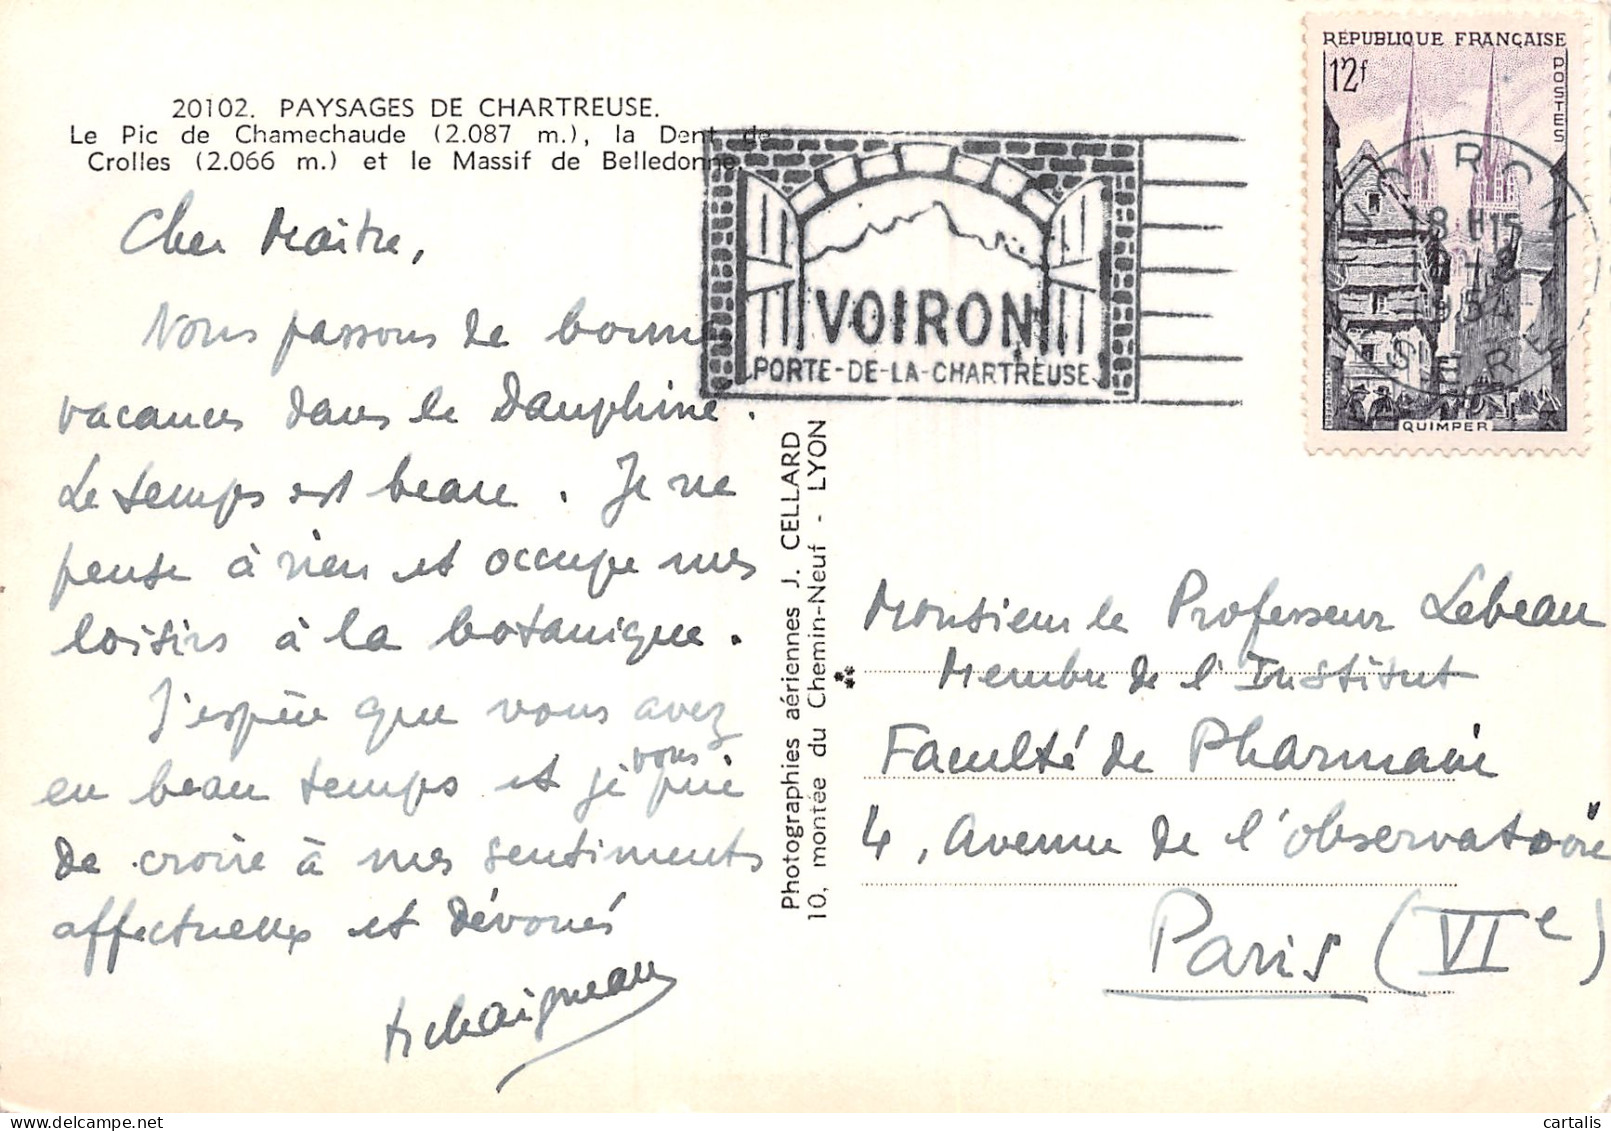 20102. PAYSAGES DE CHARTREUSE.
Le Pic de Chamechaude (2.087 m.), la Dent de
Crolles (2.066 m.) et le Massif de Belledonne.
Cher Maître,
Nous passons de bonnes
vacances dans le Dauphiné.
Le temps est beau. Je ne
pense à rien et occupe mes
loisirs à la botanique.
J'espère que vous avez
eu beau temps et je vous prie
de croire à mes sentiments
affectueux et dévoués
VOIRON
PORTE-DE-LA-CHARTREUSE
RÉPUBLIQUE FRANÇAISE
12f
POSTES
QUIMPER
VOIRON
18 H15
1954
ISERE
Photographies aériennes J. CELLARD
10, montée du Chemin-Neuf - LYON
Monsieur le Professeur Lebeau
Membre de l'Institut
Faculté de Pharmacie
4, Avenue de l'observatoire
Paris (VIe)
cartalis